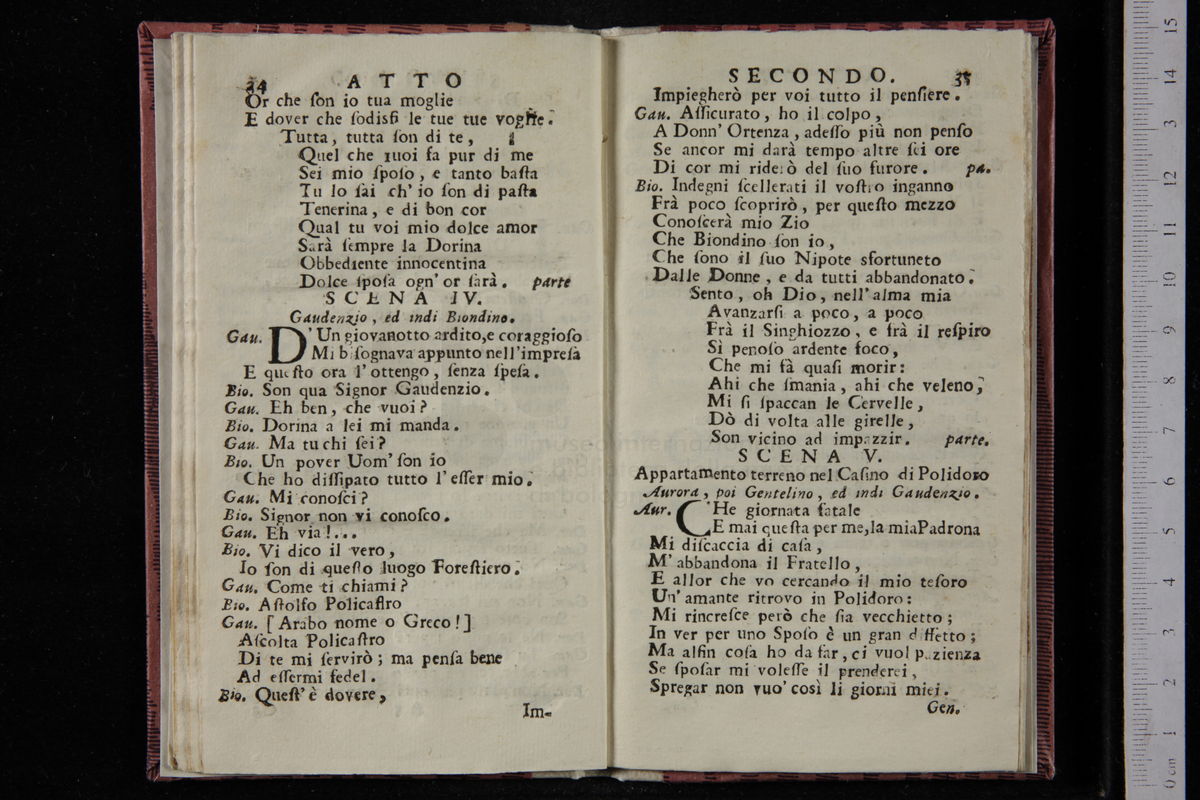 34 ATTO
Or che ſon io tua moglie
E dover che ſodisfi le tue tue voglie.
Tutta, tutta ſon di te,
Quel che vuoi fa pur di me
Sei mio ſpoſo, e tanto baſta
Tu lo ſai ch' io ſon di paſta
Tenerina, e di bon cor
Qual tu voi mio dolce amor
Sarà ſempre la Dorina
Obbediente innocentina
Dolce ſpoſa ogn' or ſarà. parte
SCENA IV.
Gaudenzio, ed indi Biondino.
Gau. D'Un giovanotto ardito,e coraggioſo
Mi biſognava appunto nell'impreſa
E queſto ora l' ottengo, ſenza ſpeſa.
Bio. Son qua Signor Gaudenzio.
Gau. Eh ben, che vuoi?
Bio. Dorina a lei mi manda.
Gau. Ma tu chi ſei?
Bio. Un pover Uom' ſon io
Che ho diſſipato tutto l' eſſer mio.
Gau. Mi conoſci?
Bio. Signor non vi conoſco.
Gau. Eh via!...
Bio. Vi dico il vero,
Io ſon di queſto luogo Foreſtiero.
Gau. Come ti chiami?
Bio. Aſtolfo Policaſtro
Gau. [ Arabo nome o Greco!]
Aſcolta Policaſtro
Di te mi ſervirò; ma penſa bene
Ad eſſermi fedel.
Bio. Queſt' è dovere,
Im-
SECONDO. 35
Impiegherò per voi tutto il penſiere.
Gau. Aſſicurato, ho il colpo,
A Donn' Ortenza, adeſſo più non penſo
Se ancor mi darà tempo altre ſei ore
Di cor mi riderò del ſuo furore. pa.
Bio. Indegni ſcellerati il voſtro inganno
Frà poco ſcoprirò, per queſto mezzo
Conoſcerà mio Zio
Che Biondino ſon io,
Che ſono il ſuo Nipote sfortuneto
Dalle Donne, e da tutti abbandonato.
Sento, oh Dio, nell' alma mia
Avanzarſi a poco, a poco
Frà il Singhiozzo, e frà il reſpiro
Sì penoſo ardente foco,
Che mi fà quaſi morir:
Ahi che ſmania, ahi che veleno,
Mi ſi ſpaccan le Cervelle,
Dò di volta alle girelle,
Son vicino ad impazzir. parte.
SCENA V.
Appartamento terreno nel Caſino di Polidoro
Aurora, poi Gentelino, ed indi Gaudenzio.
Aur. CHe giornata fatale
E mai queſta per me,la mia Padrona
Mi diſcaccia di caſa,
M' abbandona il Fratello,
E allor che vo cercando il mio teſoro
Un' amante ritrovo in Polidoro:
Mi rincreſce però che ſia vecchietto;
In ver per uno Spoſo è un gran diffetto;
Ma alfin coſa ho da far, ci vuol pazienza
Se ſpoſar mi voleſſe il prenderei,
Spregar non vuo' così li giorni miei.
Gen.